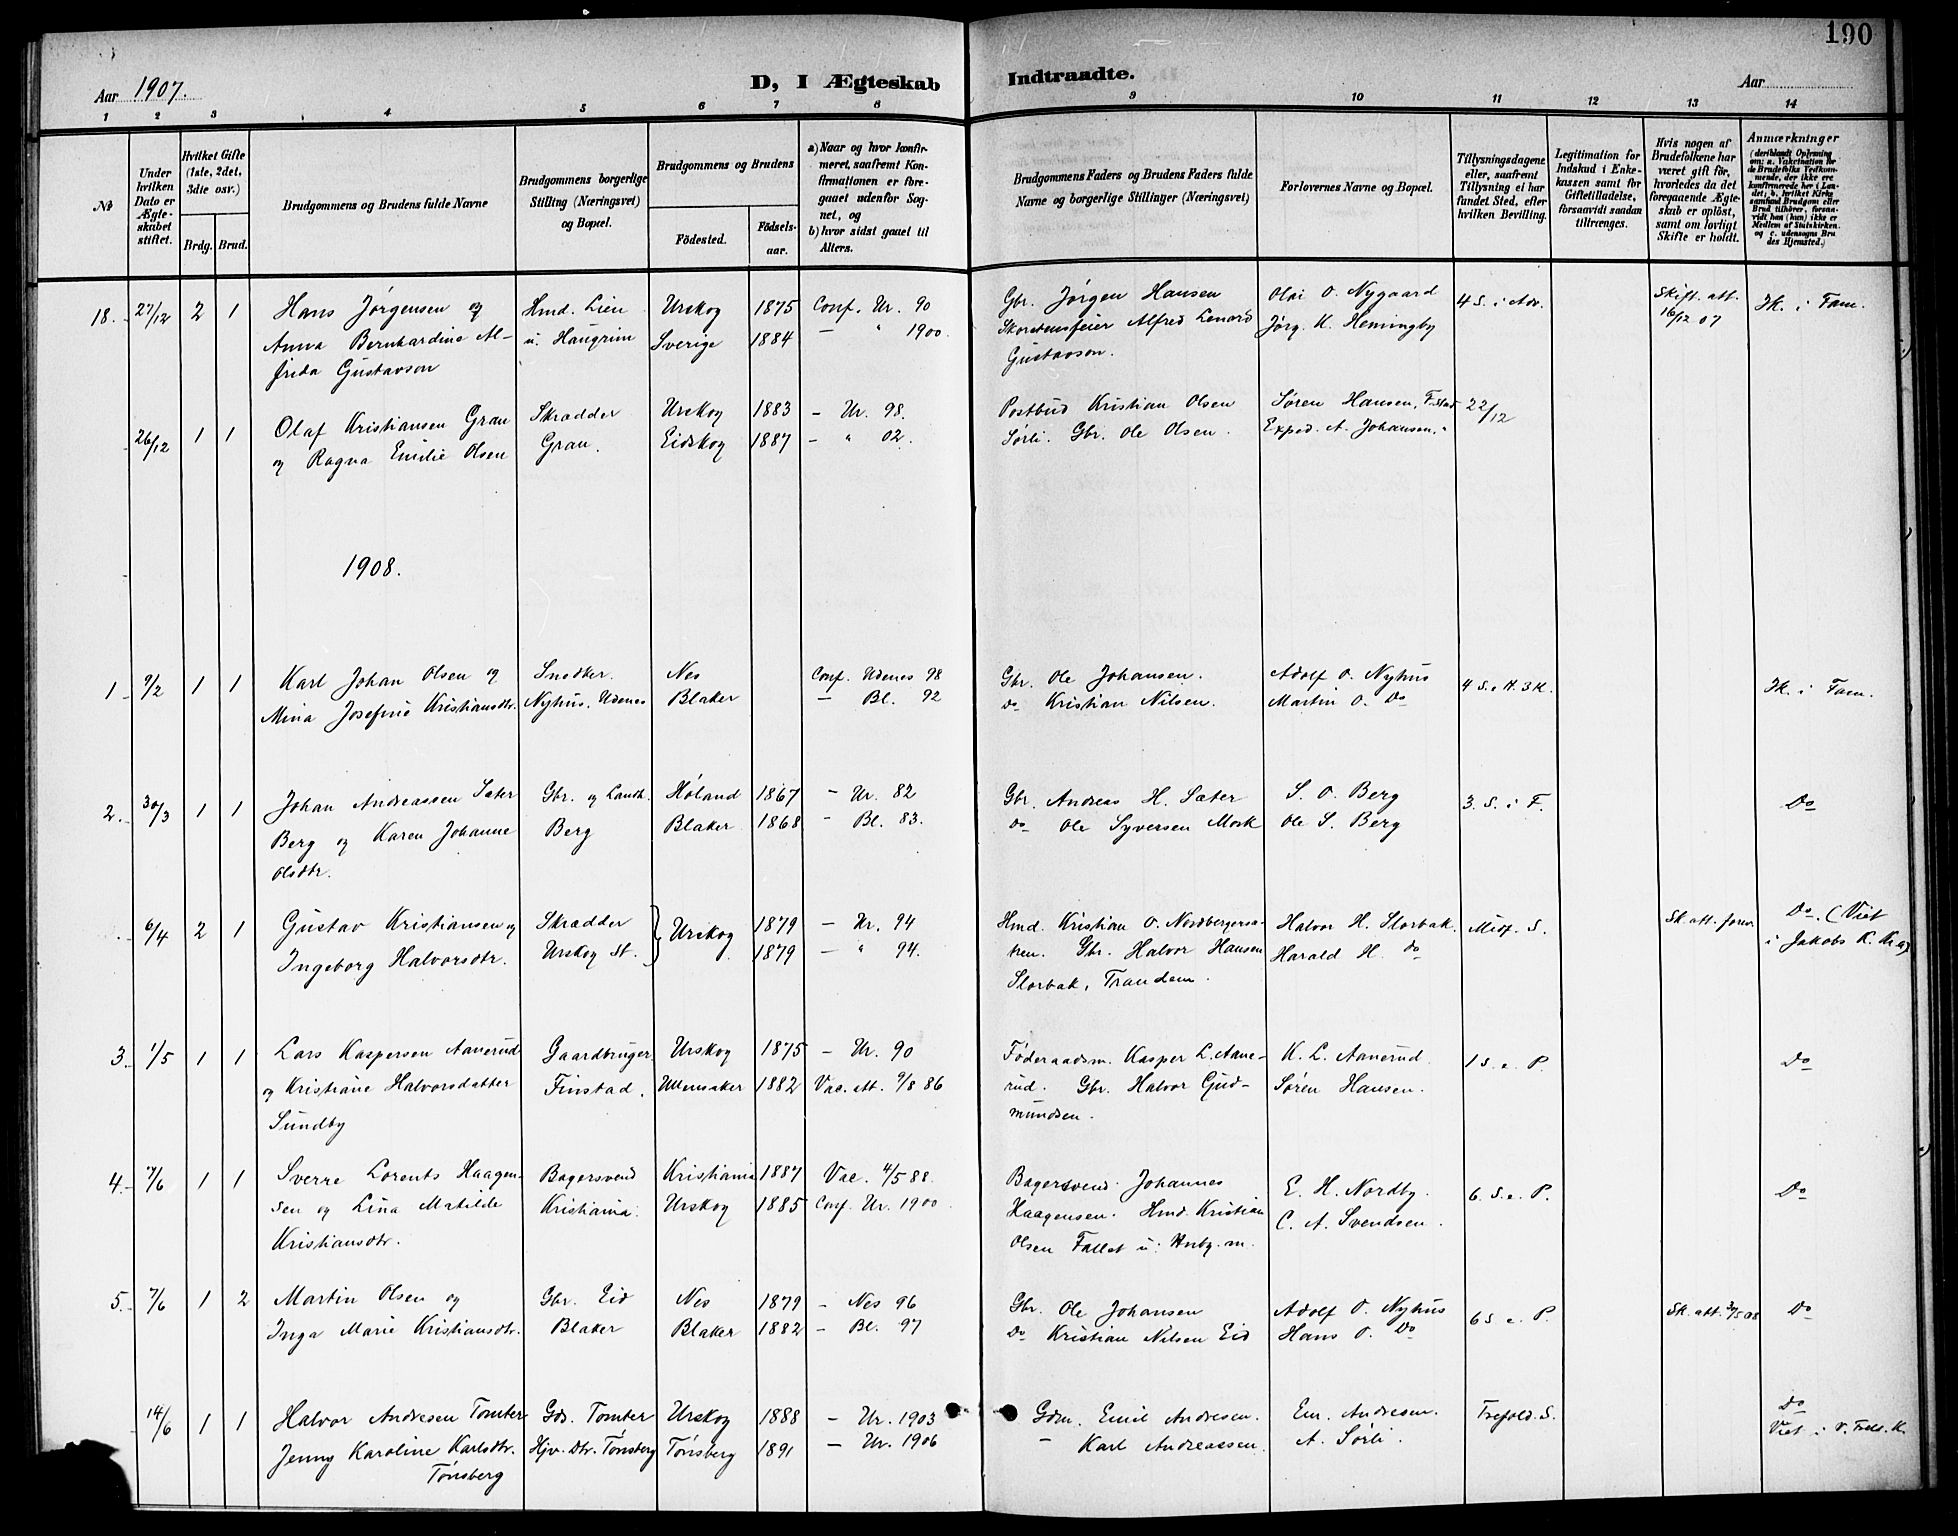 190
Aar 1907.
D, I Ægteskab Indtraadte.
Aar
1 2 3 4 5 6 7 8 9 10 11 12 13 14
No
Under hvilken Dato er Ægteskabet stiftet.
Hvilket Gifte (1ste, 2det, 3die osv.)
Brdg. Brud.
Brudgommens og Brudens fulde Navne
Brudgommens borgerlige Stilling (Næringsvei) og Bopæl.
Brudgommens og Brudens
Fødested. Fødselsaar.
a) Naar og hvor konfirmeret, saafremt Konfirmationen er foregaaet udenfor Sognet, og
b) hvor sidst gaaet til Alters.
Brudgommens Faders og Brudens Faders fulde Navne og borgerlige Stillinger (Næringsvei)
Forlovernes Navne og Bopæl.
Tillysningsdagene eller, saafremt Tillysning ei har fundet Sted, efter hvilken Bevilling.
Legitimation for Indskud i Enkekassen samt for Giftetilladelse, forsaavidt saadan tiltrænges.
Hvis nogen af Brudefolkene har været gift før, hvorledes da det foregaaende Ægteskab er opløst, samt om lovligt Skifte er holdt.
Anmærkninger
(deriblandt Oplysning om: a. Vakcination for de Brudefolks Vedkommende, der ikke ere konfirmerede her i Landet; b. hvilket Kirkesamfund Brudgom eller Brud tilhører, forsaavidt han (hun) ikke er Medlem af Statskirken. og c. udensogns Brudes Hjemsted.)
18. 27/12 2 1 Hans Jørgensen og Hmd. Lien Urskog 1875 Conf. Ur. 90 Gbr. Jørgen Hansen Olai O. Nygaard 4 S. i Adv. Skift. att. Ik. i Fam.
Anna Bernhardine Al- u. Haugrim Sverige 1884 — " 1900. Skorstensfeier Alfred Lenard Jørg. K. Hemingby 16/12 07
frida Gustavson Gustavson.
26/12 1 1 Olaf Kristiansen Grau Skrædder Urskog 1883 — Ur. 98. Postbud Kristian Olsen Søren Hansen, F.stad 22/12
og Ragna Emilie Olsen Grau. Eidskog 1887 — " 02. Sørli. Gbr. Ole Olsen. Exped. A. Johansen. "
1908.
1 9/2 1 1 Karl Johan Olsen og Snedker Nes Conf. Udenes 98 Gbr. Ole Johansen. Adolf O. Nyhus 4 S. e. H. 3 K. Ik. i Fam.
Mina Josefine Kristiansdtr. Nyhus, Udenes Blaker — Bl. 92 Do Kristian Nilsen. Martin O. Do
2. 30/3 1 1 Johan Andreassen Sæter Gbr. og Landh. Høland 1867 — Ur. 82 Gbr. Andreas H. Sæter S. O. Berg 3. S. i F. Do
Berg og Karen Johanne Berg Blaker 1868 — Bl. 83. Do Ole Syversen Mork Ole S. Berg
Olsdtr.
6/4 2 1 Gustav Kristiansen og Skrædder Urskog 1879 — Ur. 94 Hmd. Kristian O. Nordbergersa- Halvor H. Storbak. Midf. S. Sk. att. forev. Do. (Viet
Ingeborg Halvorsdtr. Urskog St. 1879 — " 94. ken. Gbr. Halvor Hansen Harald H. Do i Jakobs K. Kra)
Storbak, Trandem.
3. 1/5 1 1 Lars Kaspersen Aanerud Gaardbruger Urskog 1875 — Ur. 90 Føderaadsm. Kasper L. Aane- K. L. Aanerud. 1 S. e. P. Do
og Kristiane Halvorsdatter Finstad. Ullensaker 1882 Vac. att. 9/8 86 rud. Gbr. Halvor Gud- Søren Hansen.
Sundby mundsen.
4. 7/6 1 1 Sverre Lorents Haagen- Bagersvend Kristiania 1887 Vac. 4/5 88. Bagersvend Johannes E. H. Nordby. 6. S. e. P. Do
sen og Lina Matilde Kristiania. Urskog 1885 Conf. Ur. 1900. Haagensen. Hmd. Kristian C. A. Svendsen.
Kristiansdtr. Olsen Fallet u.
5. 7/6 1 2 Martin Olsen og Gbr. Eid Nes 1879 — Nes 96 Gbr. Ole Johansen Adolf O. Nyhus 6 S. e. P. Sk. att. Do
Inga Marie Kristiansdtr. Blaker Blaker 1882 — Bl. 97 Do Kristian Nilsen Eid Hans O. Do
14/6 1 1 Halvor Andresen Tomter Gds. Tomter Urskog 1888 — Ur. 1903 Gdm. Emil Andresen. Em. Andresen. Trefold. S. Do
Jenny Karoline Karlsdtr. Hjv. dtr. Tønsberg Tønsberg 1891 — Ur. 1906 — Karl Andreassen. A. Sørli. Viet i V. Freds. K.
Tønsberg